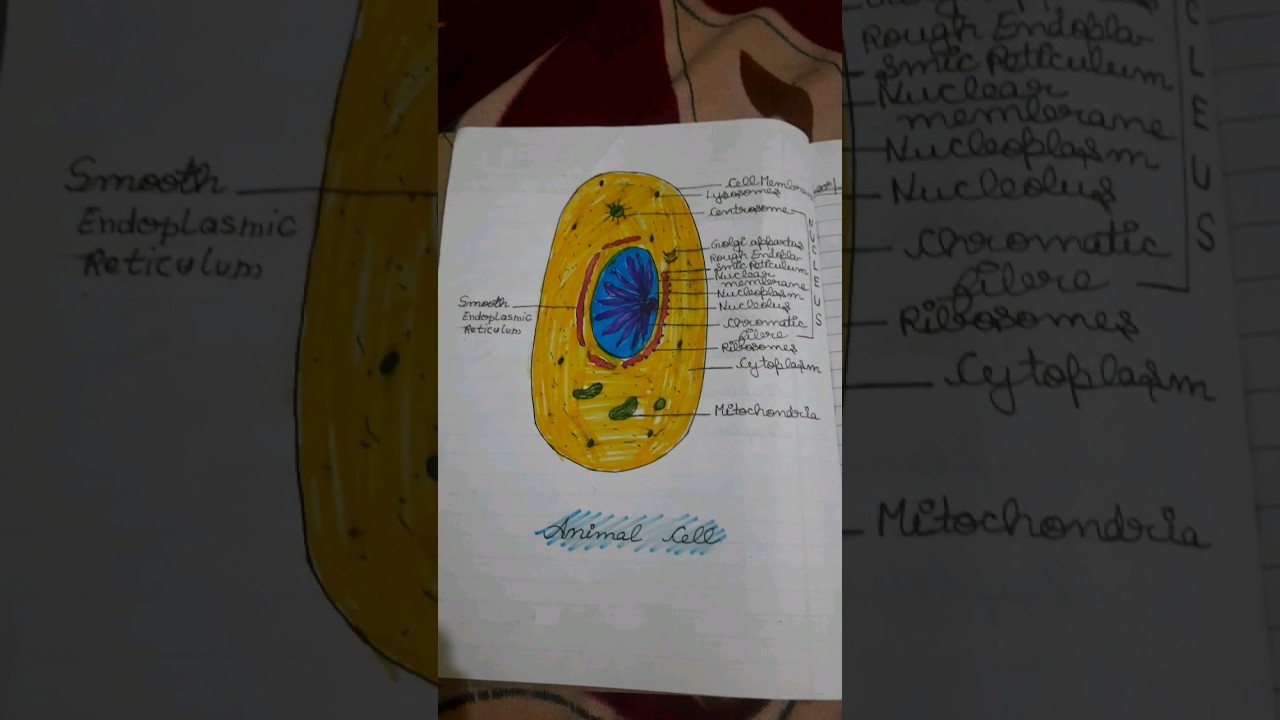 Cell Membran
Lysosomes
Centrosome
Golgi appartus
Rough Endopla-
smic Reticulum
Nuclear
membrane
Nucleoplasm
Nucleolus
Chromatic
fibre
NUCLEUS
Ribosomes
Cytoplasm
Mitochondria
Smooth
Endoplasmic
Reticulum
Animal Cell
Smooth
Endoplasmic
Reticulum
Rough Endopla-
smic Reticulum
Nuclear
membrane
Nucleoplasm
Nucleolus
Chromatic
fibre
CLEUS
Ribosomes
Cytoplasm
Mitochondria